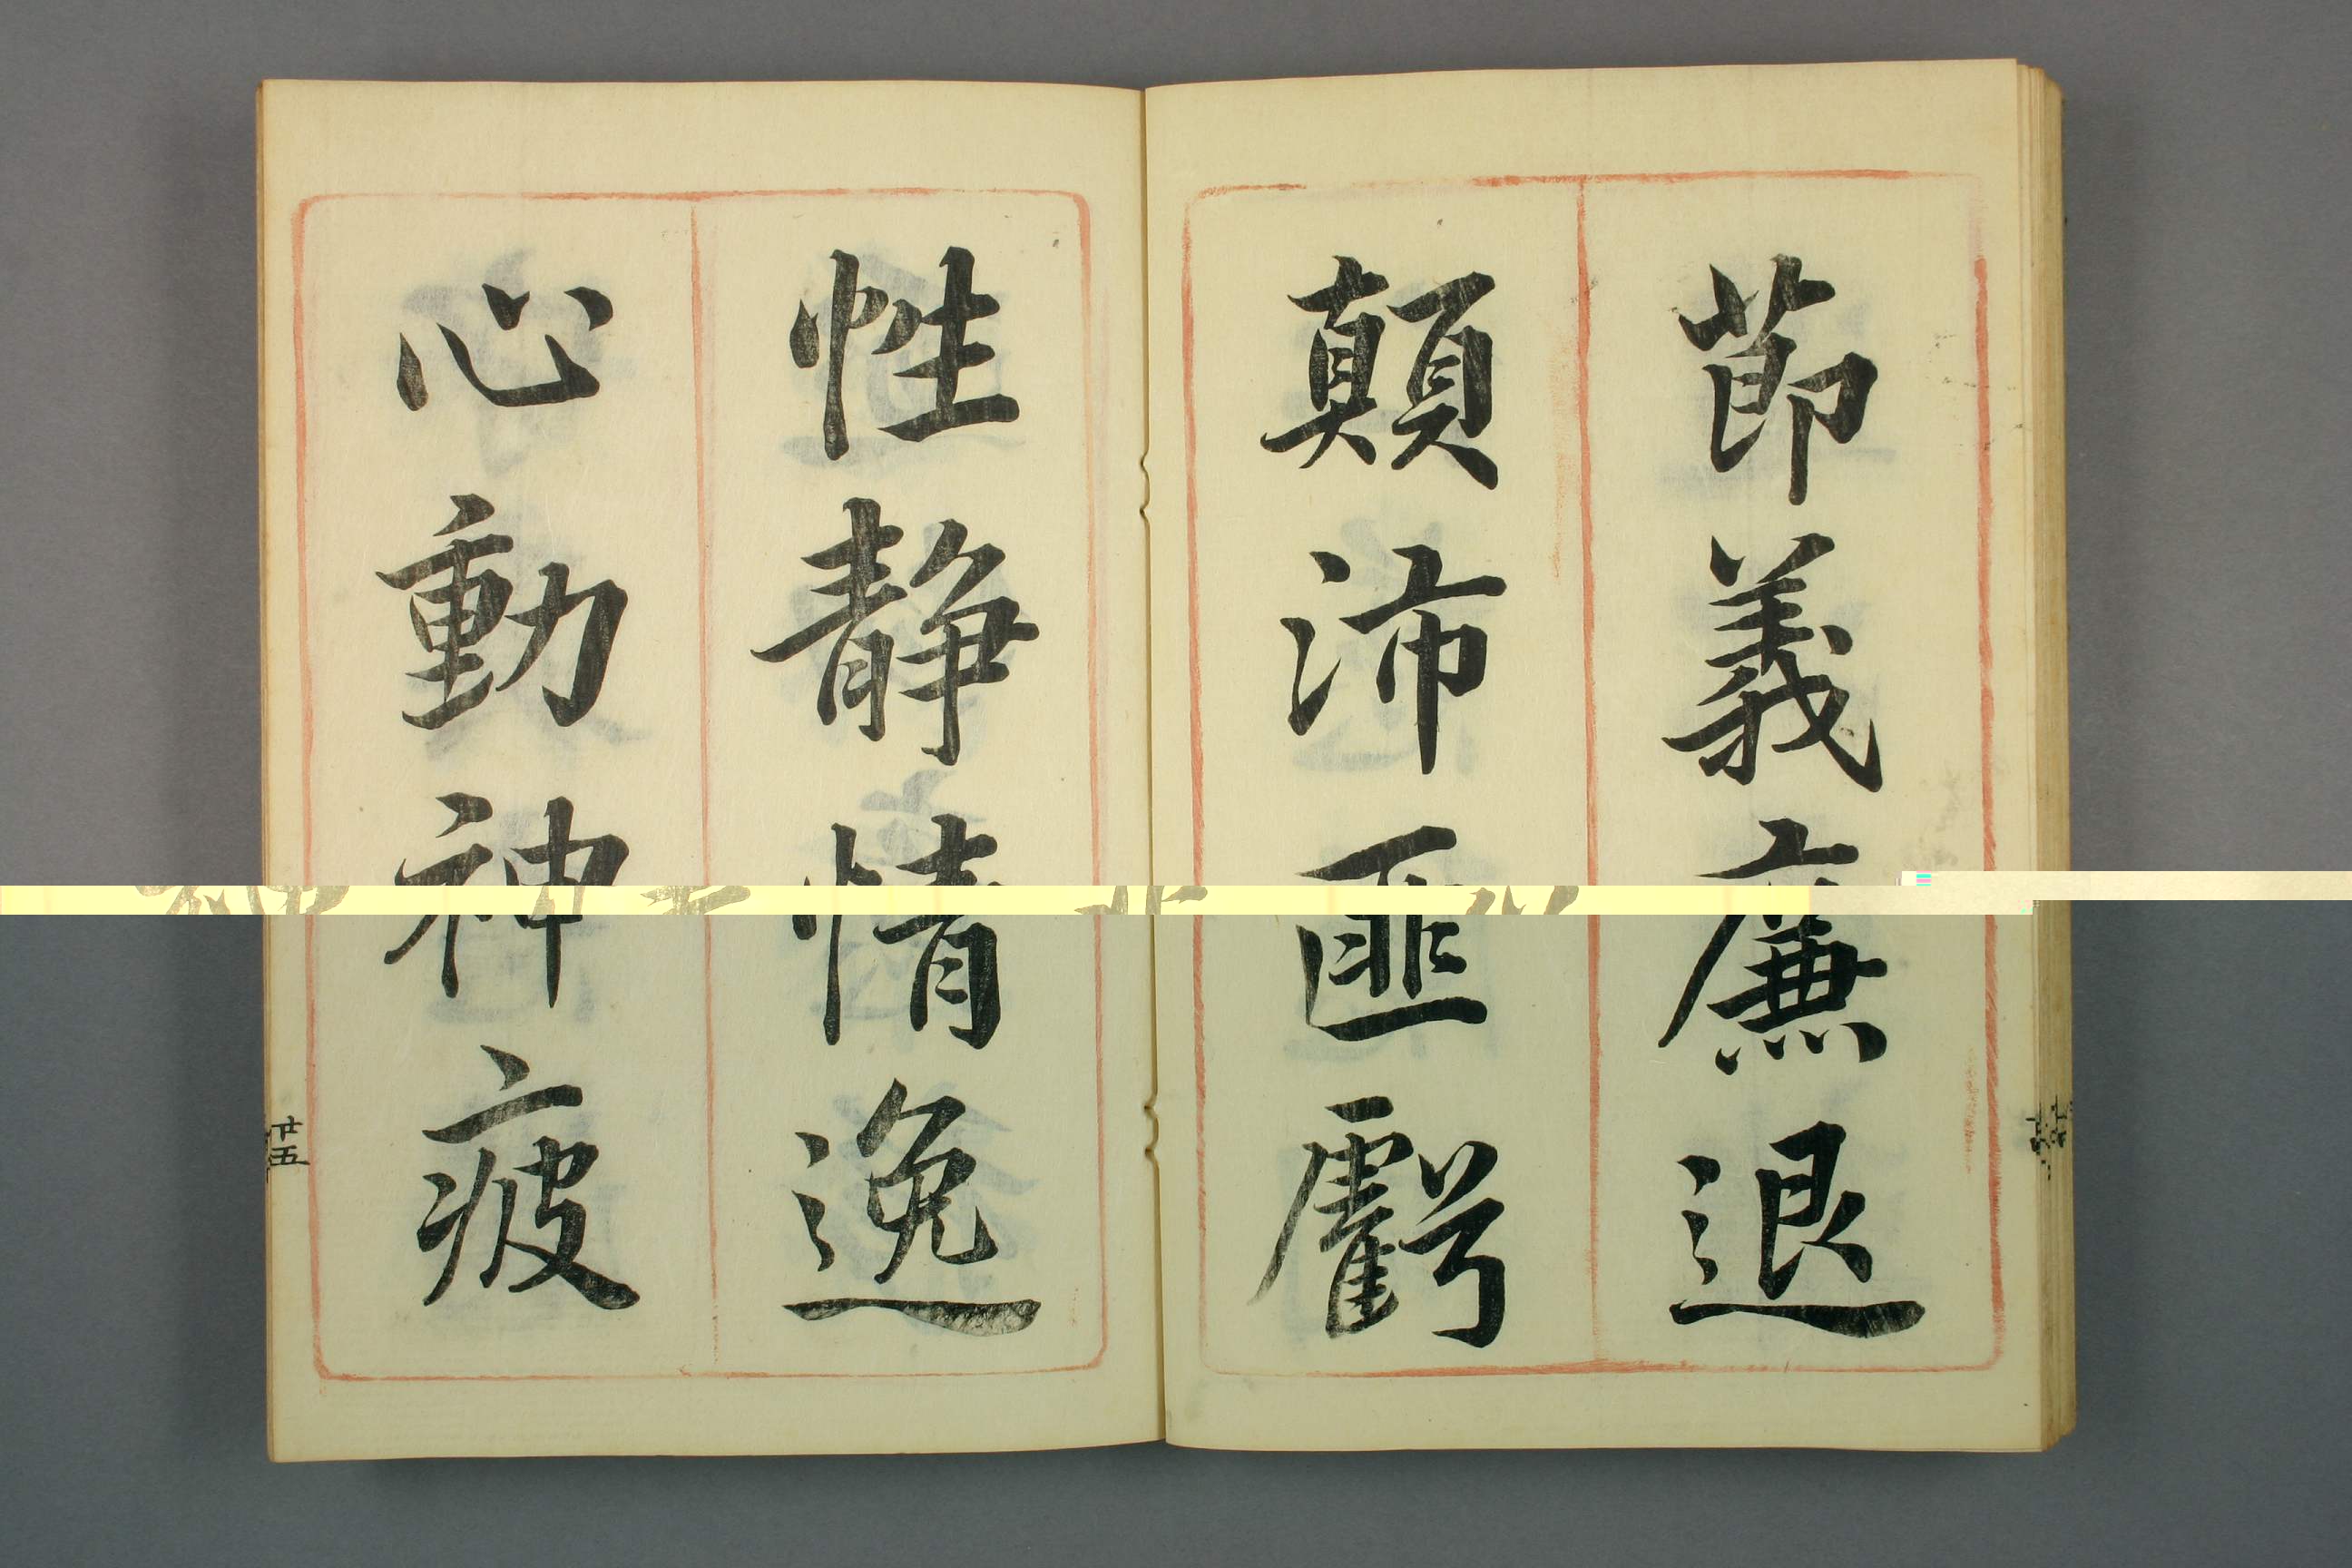 節義廉退
顛沛匪虧
性静情逸
心動神疲
廿五